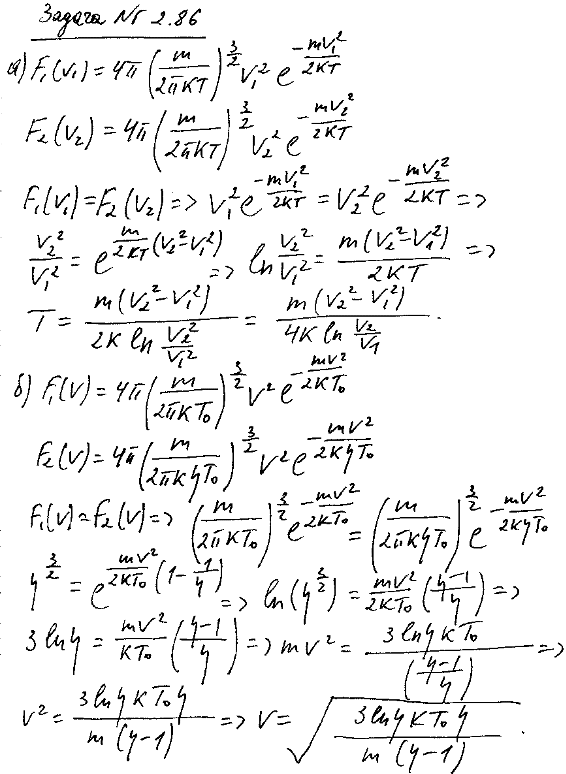 Задача № 2.86
а) F₁(v₁) = 4π (m/2πKT)^(3/2) v₁² e^(-mv₁²/2KT)
F₂(v₂) = 4π (m/2πKT)^(3/2) v₂² e^(-mv₂²/2KT)
F₁(v₁) = F₂(v₂) => v₁² e^(-mv₁²/2KT) = v₂² e^(-mv₂²/2KT) =>
v₂²/v₁² = e^(m/2KT (v₂²-v₁²)) => ln v₂²/v₁² = m(v₂²-v₁²)/2KT =>
T = m(v₂²-v₁²)/(2K ln v₂²/v₁²) = m(v₂²-v₁²)/(4K ln v₂/v₁).
б) F₁(v) = 4π (m/2πKT₀)^(3/2) v² e^(-mv²/2KT₀)
F₂(v) = 4π (m/2πKηT₀)^(3/2) v² e^(-mv²/2KηT₀)
F₁(v) = F₂(v) => (m/2πKT₀)^(3/2) e^(-mv²/2KT₀) = (m/2πKηT₀)^(3/2) e^(-mv²/2KηT₀)
η^(3/2) = e^(mv²/2KT₀ (1-1/η)) => ln(η^(3/2)) = mv²/2KT₀ (η-1/η) =>
3 lnη = mv²/KT₀ (η-1/η) => mv² = 3 lnη KT₀/(η-1/η) =>
v² = 3 lnη KT₀ η/m(η-1) => v = √(3 lnη KT₀ η/m(η-1)).